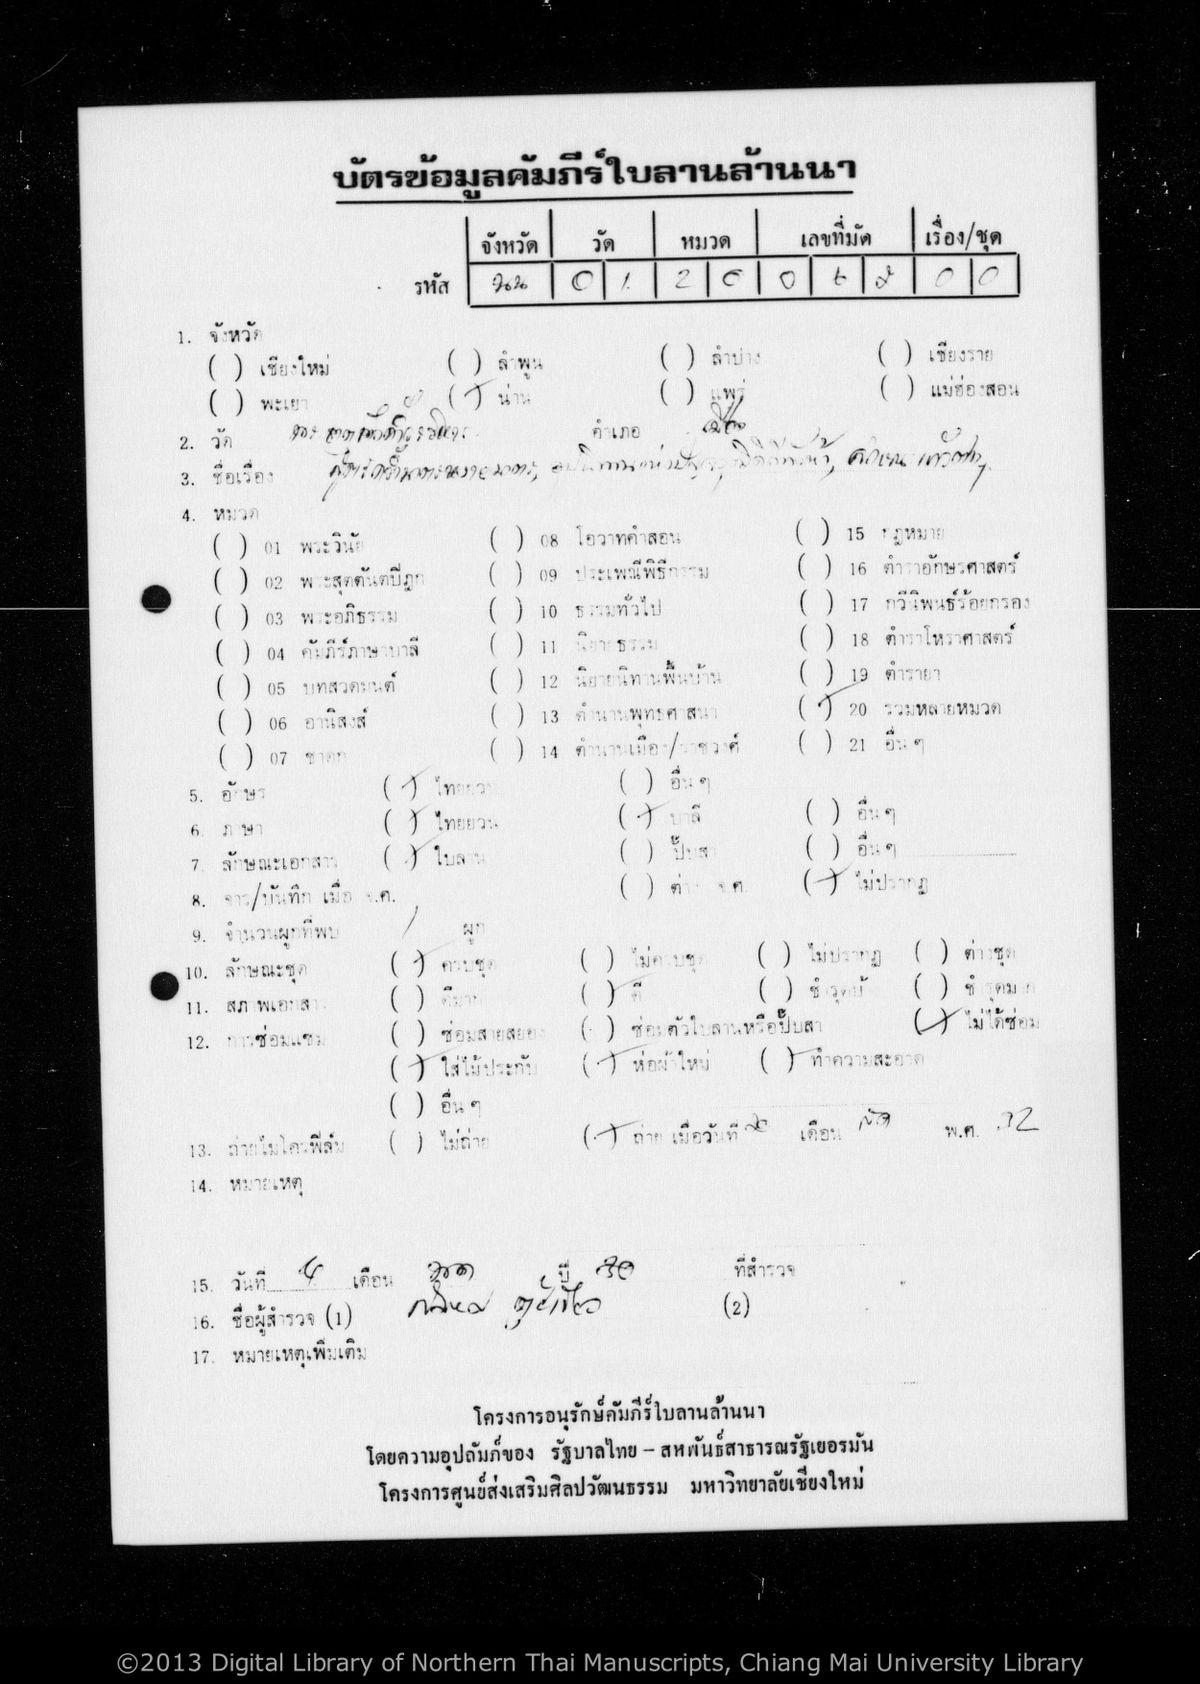 บัตรข้อมูลคัมภีร์ใบลานล้านนา
จังหวัด วัด หมวด เลขที่มัด เรื่อง/ชุด
รหัส นน 0 1 2 0 0 6 2 0 0
1. จังหวัด
( ) เชียงใหม่ ( ) ลำพูน ( ) ลำปาง ( ) เชียงราย
( ) พะเยา (/) น่าน ( ) แพร่ ( ) แม่ฮ่องสอน
2. วัด อำเภอ เมือง
3. ชื่อเรื่อง
4. หมวด
( ) 01 พระวินัย ( ) 08 โอวาทคำสอน ( ) 15 กฎหมาย
( ) 02 พระสุตตันตปิฎก ( ) 09 ประเพณีพิธีกรรม ( ) 16 ตำราอักษรศาสตร์
( ) 03 พระอภิธรรม ( ) 10 ธรรมทั่วไป ( ) 17 กวีนิพนธ์ร้อยกรอง
( ) 04 คัมภีร์ภาษาบาลี ( ) 11 นิยายธรรม ( ) 18 ตำราโหราศาสตร์
( ) 05 บทสวดมนต์ ( ) 12 นิยายนิทานพื้นบ้าน ( ) 19 ตำรายา
( ) 06 อานิสงส์ ( ) 13 ตำนานพุทธศาสนา (/) 20 รวมหลายหมวด
( ) 07 ชาดก ( ) 14 ตำนานเมือง/ราชวงศ์ ( ) 21 อื่นๆ
5. อักษร (/) ไทยยวน ( ) อื่นๆ
6. ภาษา (/) ไทยยวน (/) บาลี ( ) อื่นๆ
7. ลักษณะเอกสาร (/) ใบลาน ( ) ปั๊บสา ( ) อื่นๆ
8. จาร/บันทึก เมื่อ จ.ศ. ( ) ต่าง จ.ศ. (/) ไม่ปรากฏ
9. จำนวนผูกที่พบ / ผูก
10. ลักษณะชุด (/) ครบชุด ( ) ไม่ครบชุด ( ) ไม่ปรากฏ ( ) ต่างชุด
11. สภาพเอกสาร ( ) ดีมาก (/) ดี ( ) ชำรุดบ้าง ( ) ชำรุดมาก
12. การซ่อมแซม ( ) ซ่อมสายสยอง ( ) ซ่อมตัวใบลานหรือปั๊บสา (/) ไม่ได้ซ่อม
(/) ใส่ไม้ประกับ (/) ห่อผ้าใหม่ (/) ทำความสะอาด
( ) อื่นๆ
13. ถ่ายไมโครฟิล์ม ( ) ไม่ถ่าย (/) ถ่าย เมื่อวันที่ เดือน พ.ศ. 32
14. หมายเหตุ
15. วันที่ 4 เดือน ปี 30 ที่สำรวจ
16. ชื่อผู้สำรวจ (1) (2)
17. หมายเหตุเพิ่มเติม
โครงการอนุรักษ์คัมภีร์ใบลานล้านนา
โดยความอุปถัมภ์ของ รัฐบาลไทย – สหพันธ์สาธารณรัฐเยอรมัน
โครงการศูนย์ส่งเสริมศิลปวัฒนธรรม มหาวิทยาลัยเชียงใหม่
©2013 Digital Library of Northern Thai Manuscripts, Chiang Mai University Library